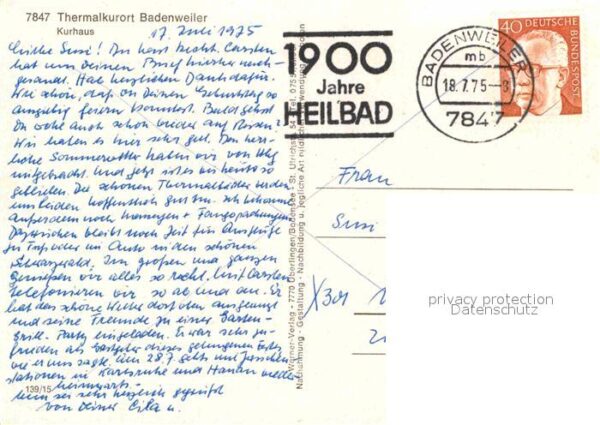 7847 Thermalkurort Badenweiler
Kurhaus
17. Juli 1975
Liebe Susi! Du hast recht. Carsten
hat uns Deinen Brief hierher nach-
gesandt. Hab herzlichen Dank dafür.
Wie schön, daß Du Deinen Geburtstag so
ausgiebig feiern konntest. Bald gehst
Du wohl auch schon wieder auf Reisen?
Wir haben es hier sehr gut. Das herr-
liche Sommerwetter haben wir von
mitgebracht. Und jetzt ist es bis heute so
geblieben. Die schönen Thermalbäder werden
uns beiden hoffentlich gut tun. Wir bekommen
außerdem noch Massagen + Fangopackungen
Dazwischen bleibt noch Zeit für Ausflüge
zu Fuß oder im Auto in den schönen
Schwarzwald. Im großen und ganzen
genießen wir alles so recht. Mit Carsten
telefonieren wir so ab und an. Er
hat das schöne Wetter dort oben ausgenutzt
und seine Freunde zu einer Garten-
Grill-Party eingeladen. Er war sehr zu-
frieden als Gastgeber dieses gelungenen Festes,
wie er uns sagte. Am 28.7. geht's mit Zwischen-
stationen in Karlsruhe und Hanau wieder
heimwärts.
sei sehr herzlich gegrüßt
von Deiner u.
139/15
1900
Jahre
HEILBAD
BADENWEILER
mb
18.7.75-8
7847
40 DEUTSCHE
BUNDESPOST
Werner-Verlag - 7770 Überlingen/Bodensee - St. Ulrichstr.
Nachahmung - Gestaltung - Nachbildung u. jegliche Art
Frau
Susi
privacy protection
Datenschutz